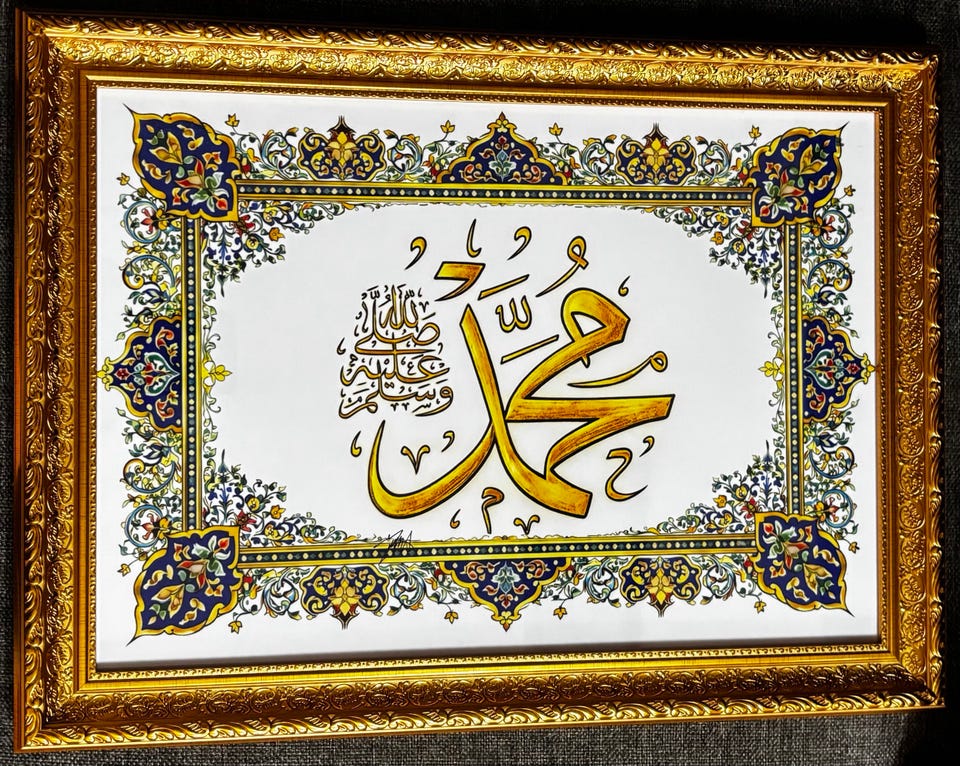 محمد
صَلَّى اللهُ
عَلَيْهِ
وَسَلَّمَ